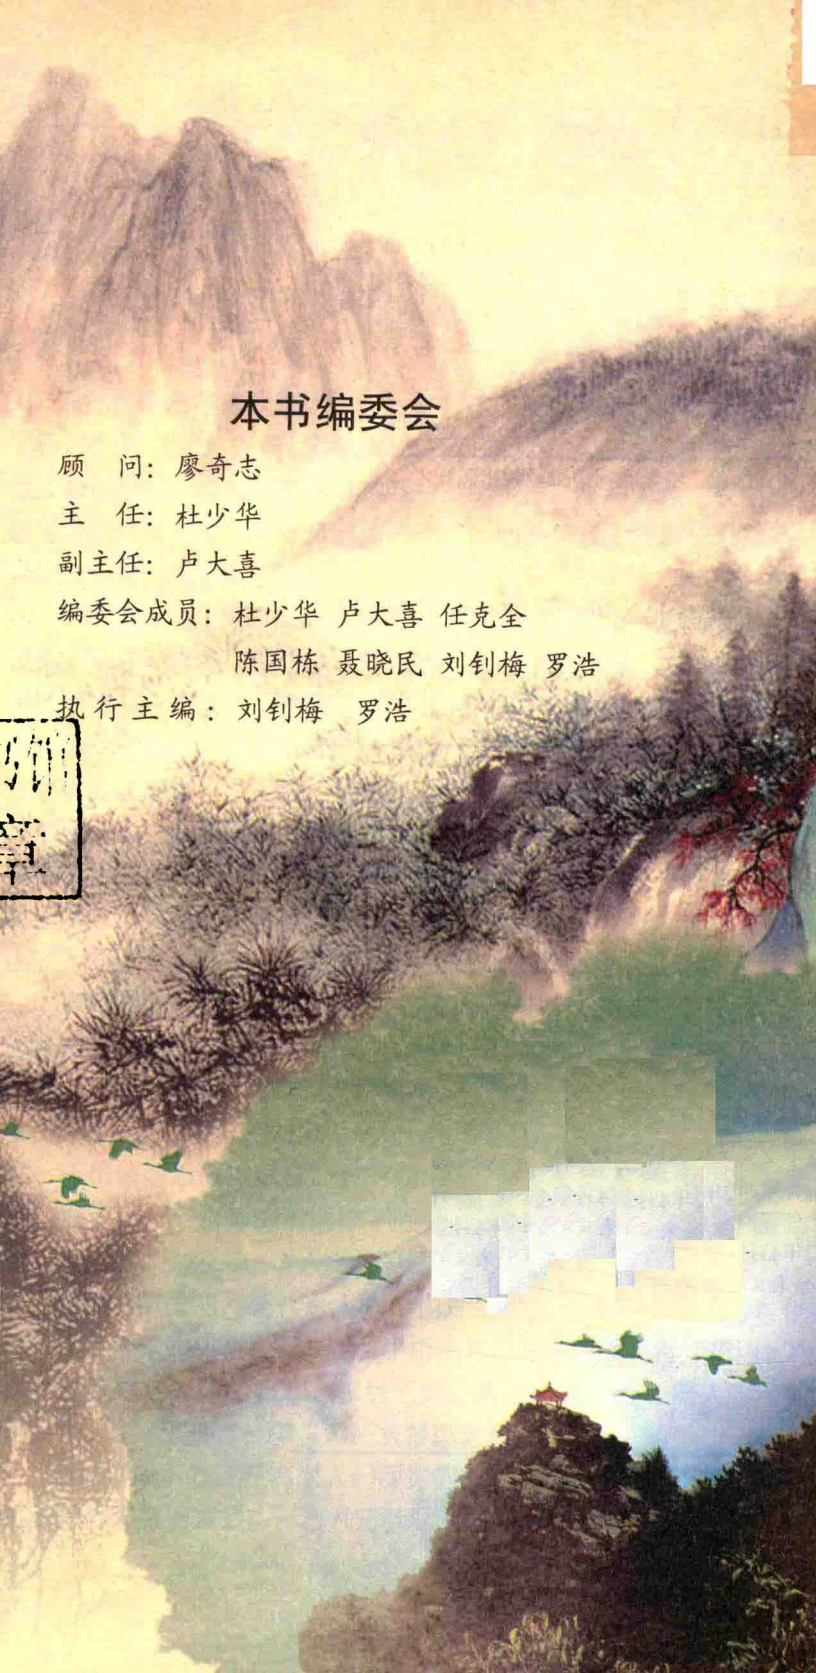 本书编委会
顾　问：廖奇志
主　任：杜少华
副主任：卢大喜
编委会成员：杜少华 卢大喜 任克全
陈国栋 聂晓民 刘钊梅 罗浩
执行主编：刘钊梅　罗浩
章